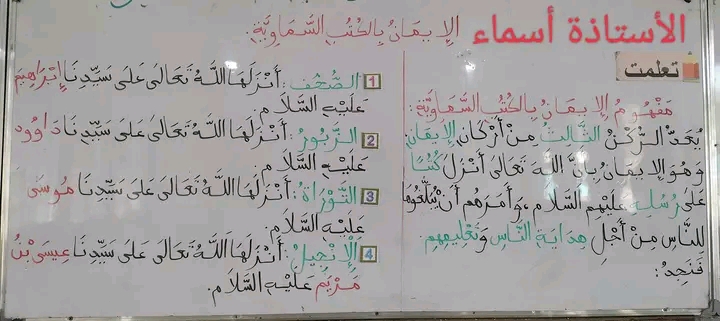 الأستاذة أسماء
الإِيمَانُ بِالكُتُبِ السَّمَاوِيَّةِ.
تعلمت
مَفْهُومُ الإِيمَانِ بِالكُتُبِ السَّمَاوِيَّةِ:
يُعَدُّ الرُّكْنُ الثَّالِثُ مِنْ أَرْكَانِ الإِيمَانِ
وَهُوَ الإِيمَانُ بِأَنَّ اللهَ تَعَالَى أَنْزَلَ كُتُبًا
عَلَى رُسُلِهِ عَلَيْهِمُ السَّلَامُ، وَأَمَرَهُمْ أَنْ يُبَلِّغُوهَا
لِلنَّاسِ مِنْ أَجْلِ هِدَايَةِ النَّاسِ وَتَعْلِيمِهِمْ.
فَنَجِدُ:
1 الصُّحُفُ: أَنْزَلَهَا اللَّهُ تَعَالَى عَلَى سَيِّدِنَا إِبْرَاهِيمَ
عَلَيْهِ السَّلَامُ.
2 الزَّبُورُ: أَنْزَلَهَا اللَّهُ تَعَالَى عَلَى سَيِّدِنَا دَاوُودَ
عَلَيْهِ السَّلَامُ.
3 التَّوْرَاةُ: أَنْزَلَهَا اللَّهُ تَعَالَى عَلَى سَيِّدِنَا مُوسَى
عَلَيْهِ السَّلَامُ.
4 الإِنْجِيلُ: أَنْزَلَهَا اللَّهُ تَعَالَى عَلَى سَيِّدِنَا عِيسَى بْنُ
مَرْيَمَ عَلَيْهِ السَّلَامُ.